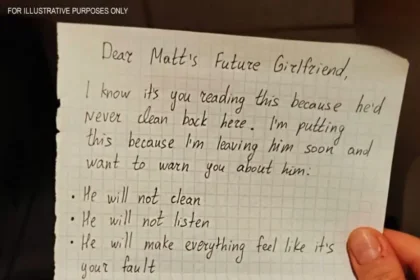 FOR ILLUSTRATIVE PURPOSES ONLY
Dear Matt's Future Girlfriend,
I know it's you reading this because he'd
never clean back here. I'm putting
this because I'm leaving him soon and
want to warn you about him:
• He will not clean
• He will not listen
• He will make everything feel like it's
your fault